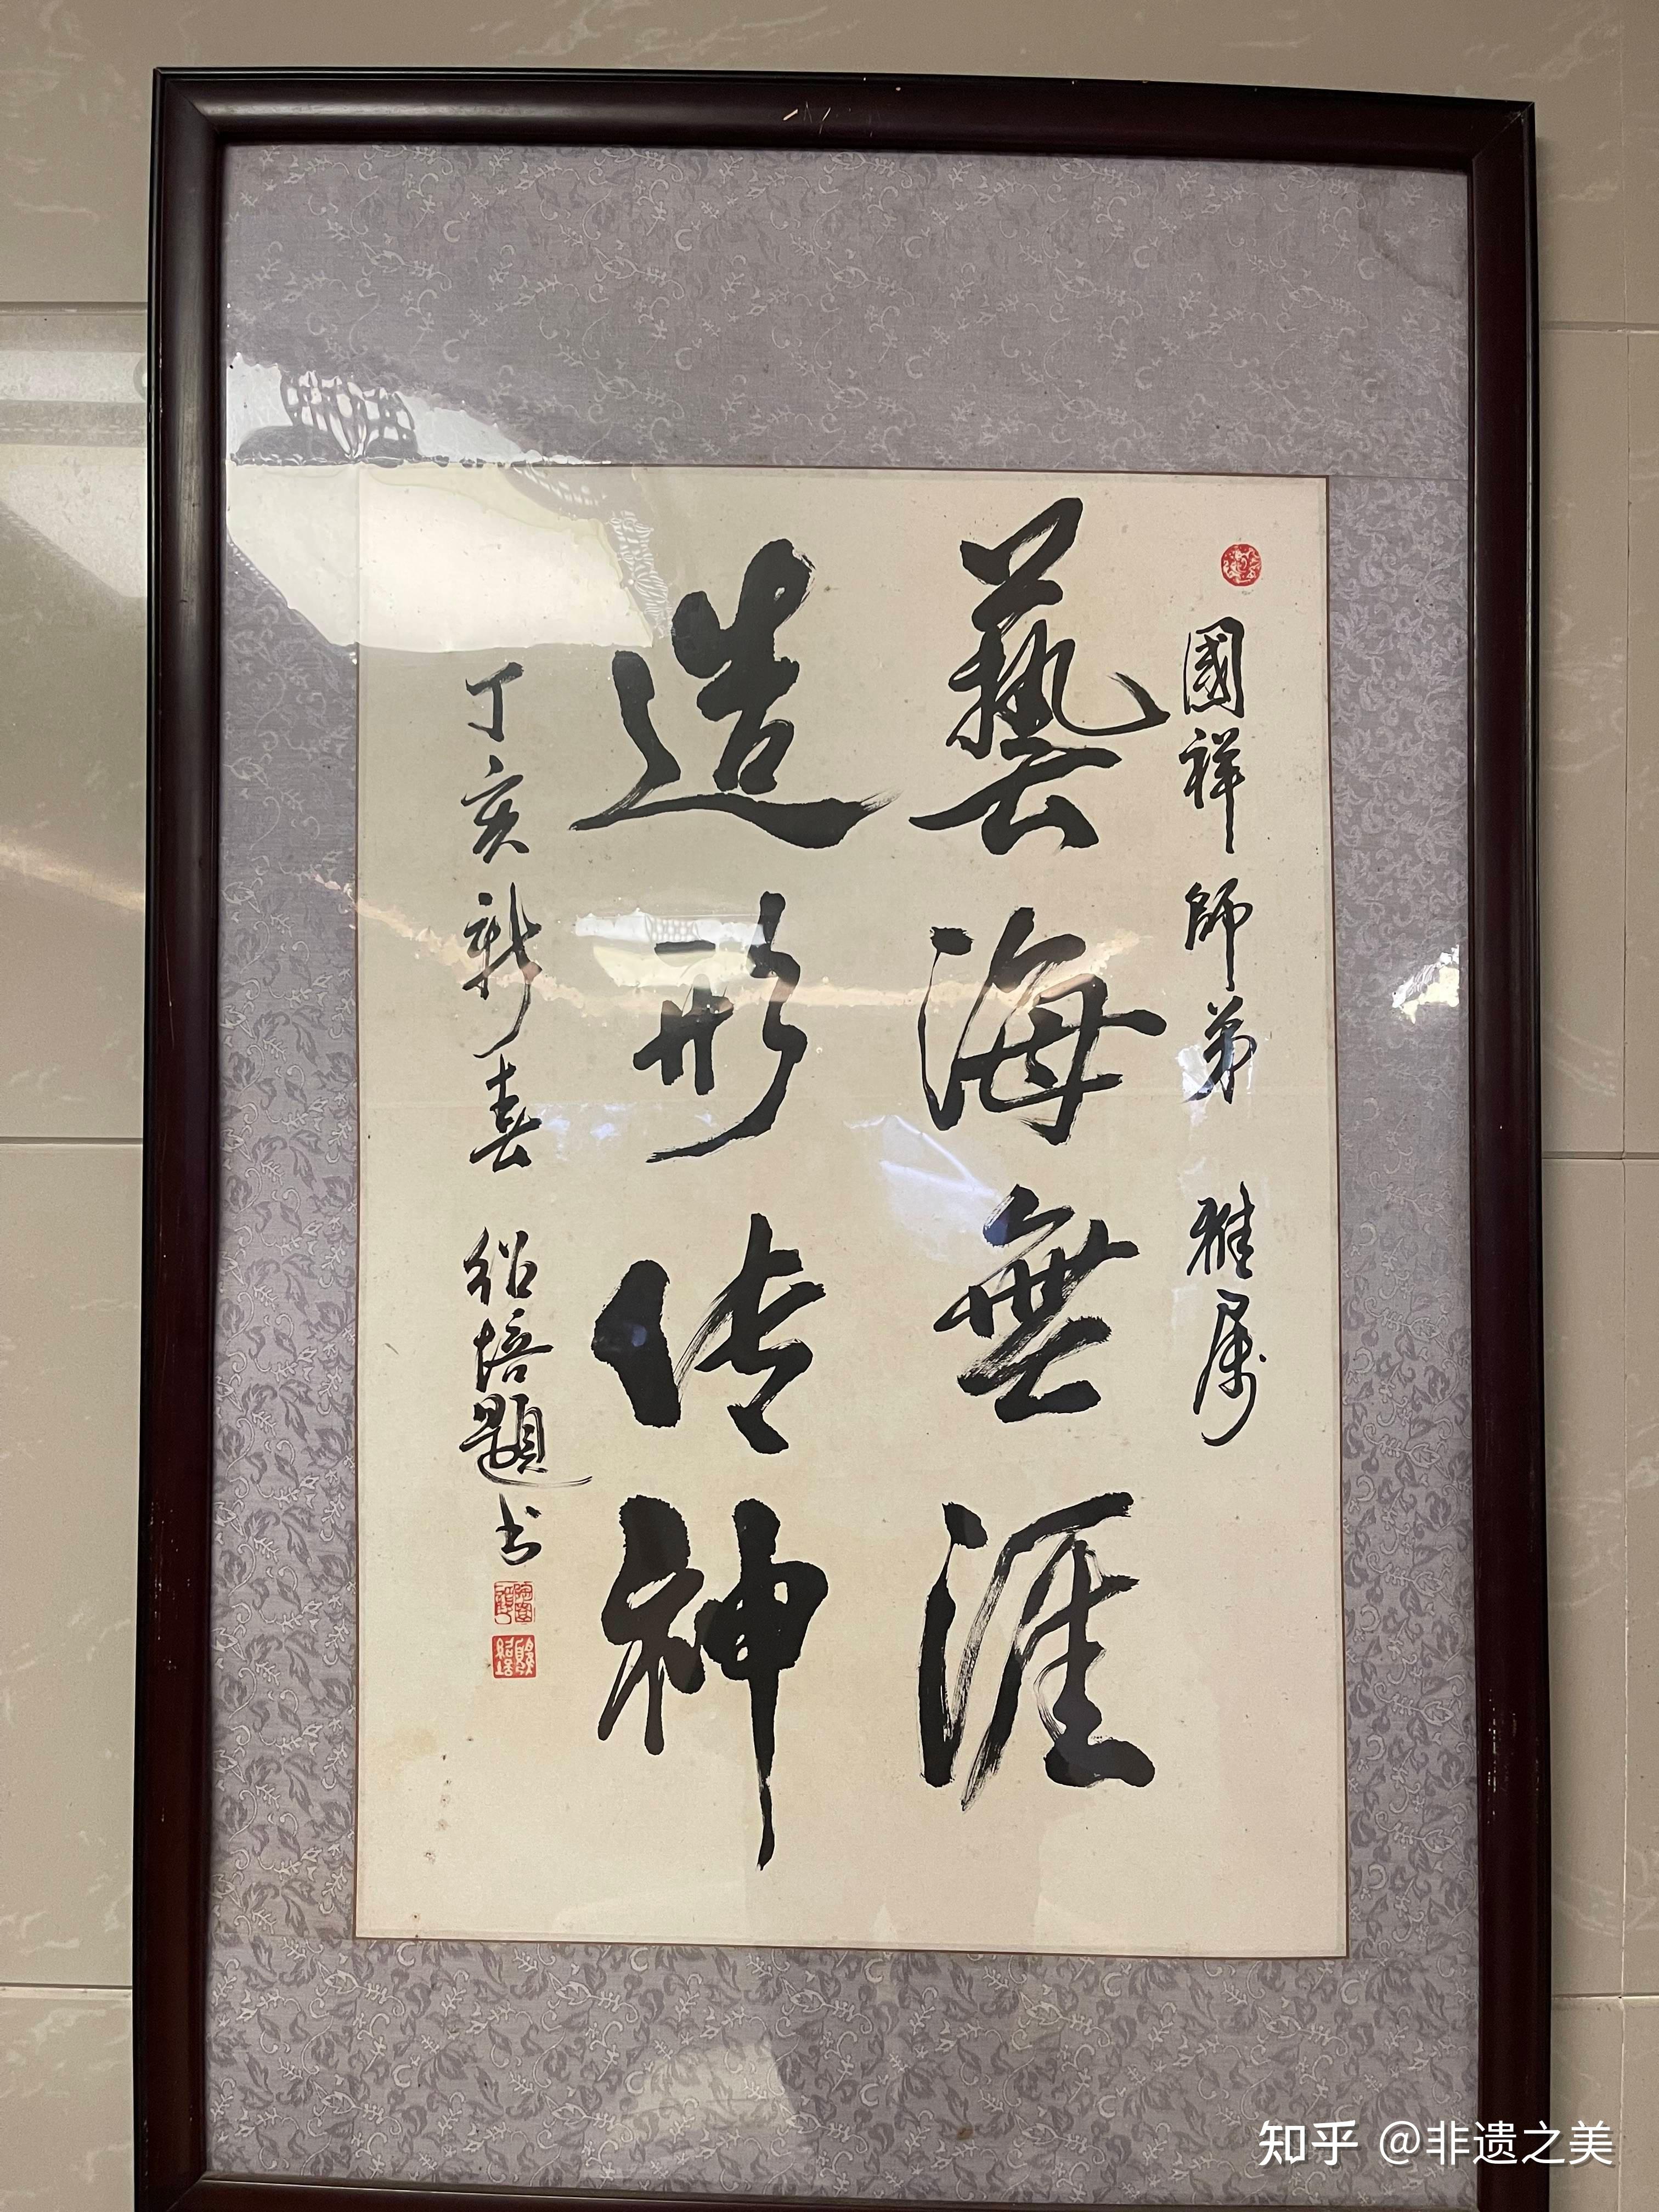 國祥師弟 雅属
藝海無涯
造形传神
丁亥新春 绍培題书
知乎 @非遗之美